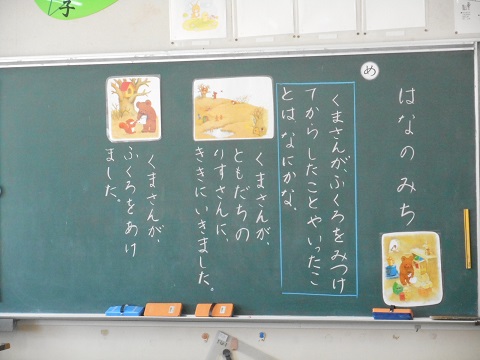 はなのみち
め
くまさんが、ふくろをみつけ
てからしたことや いったこ
とは なにかな。
くまさんが、
ともだちの
りすさんに、
ききにいきました。
くまさんが、
ふくろをあけ
ました。
子